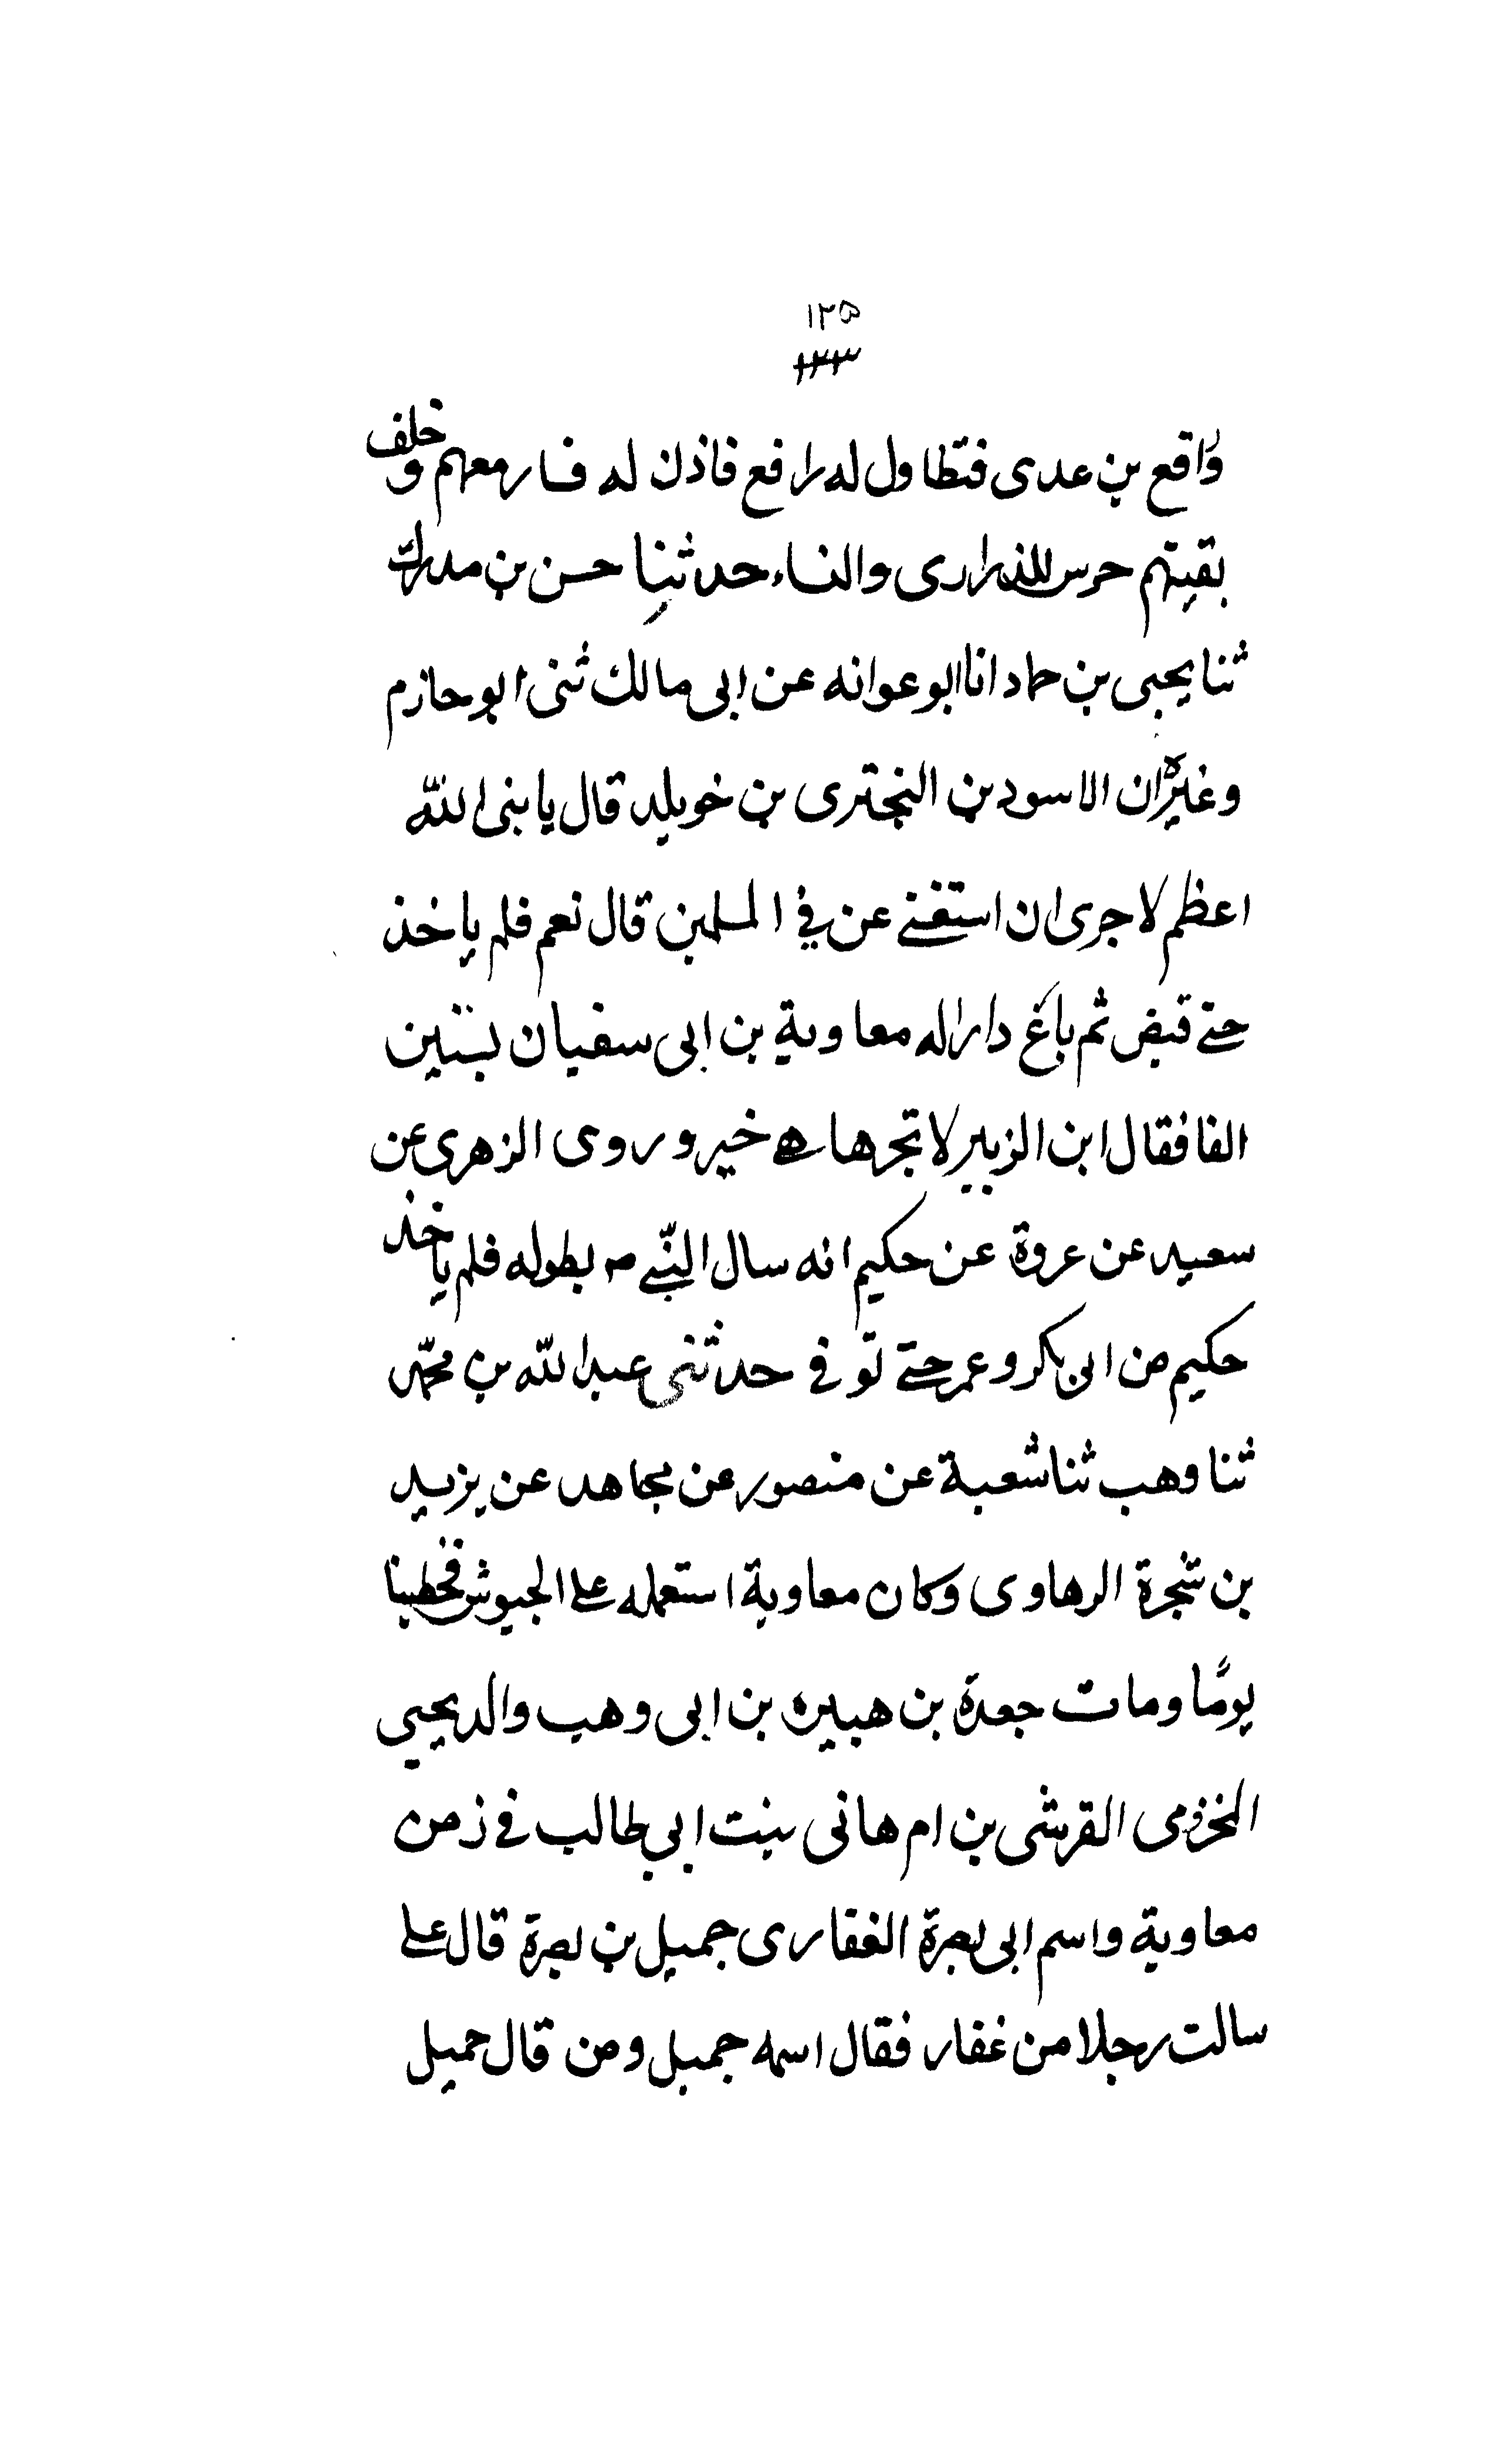 ١٢٥
١٢٣
واقع بن عدى فتطاول له رافع فاذن له فسار معهم وخلف
بقيتهم حرس للذرارى والنساء حدثنا حسن بن مدرك
ثنا يحيى بن حماد انا ابو عوانه عن ابى مالك ثنى ابو حازم
وغيره ان الاسود بن البخترى بن خويلد قال يا نبى الله
اعظم لاجرى ان استغنے عن فى المسلمين قال نعم فلم ياخذ
حتے قبض ثم باغ دارا له معاوية بن ابى سفيان بستين
الفا فقال ابن الزبير لا تجرها هے خير وروى الزهرى عن
سعيد عن عروة عن حكيم انه سال النبے ص بطوله فلم ياخذ
حكيم من ابى بكر وعمر حتے توفى حدثنى عبد الله بن محمد
ثنا وهب ثنا شعبة عن منصور عن مجاهد عن يزيد
بن شجرة الرهاوى وكان معاوية استعمله على الجيوش فخطبنا
يومًا ومات جعدة بن هبيره بن ابى وهب والد يحيى
المخزومى القرشى بن ام هانى بنت ابي طالب فى زمن
معاوية واسم ابى بصرة الغفارى جميل بن بصرة قال على
سالت رجلا من غفار فقال اسمه جميل ومن قال حميل